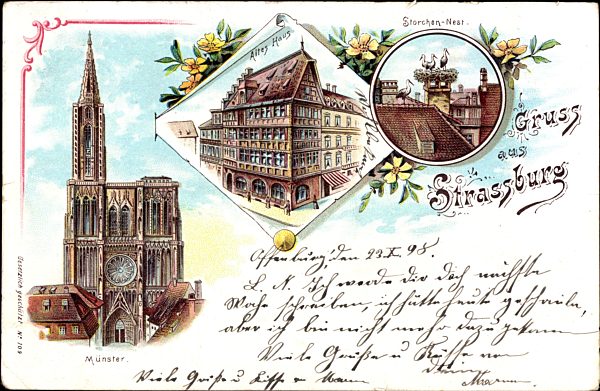 Storchen-Nest.
Altes Haus
Gruss
aus
Strassburg
Münster.
Gesetzlich geschützt No 109
Offenburg, den 23.X.98.
L. N. Ich werde dir doch nächste
Woche schreiben, ich hätte heute geschrieben,
aber ich bin nicht mehr dazu gekommen
Viele Grüße u Küsse von
Viele Grüße u Küsse